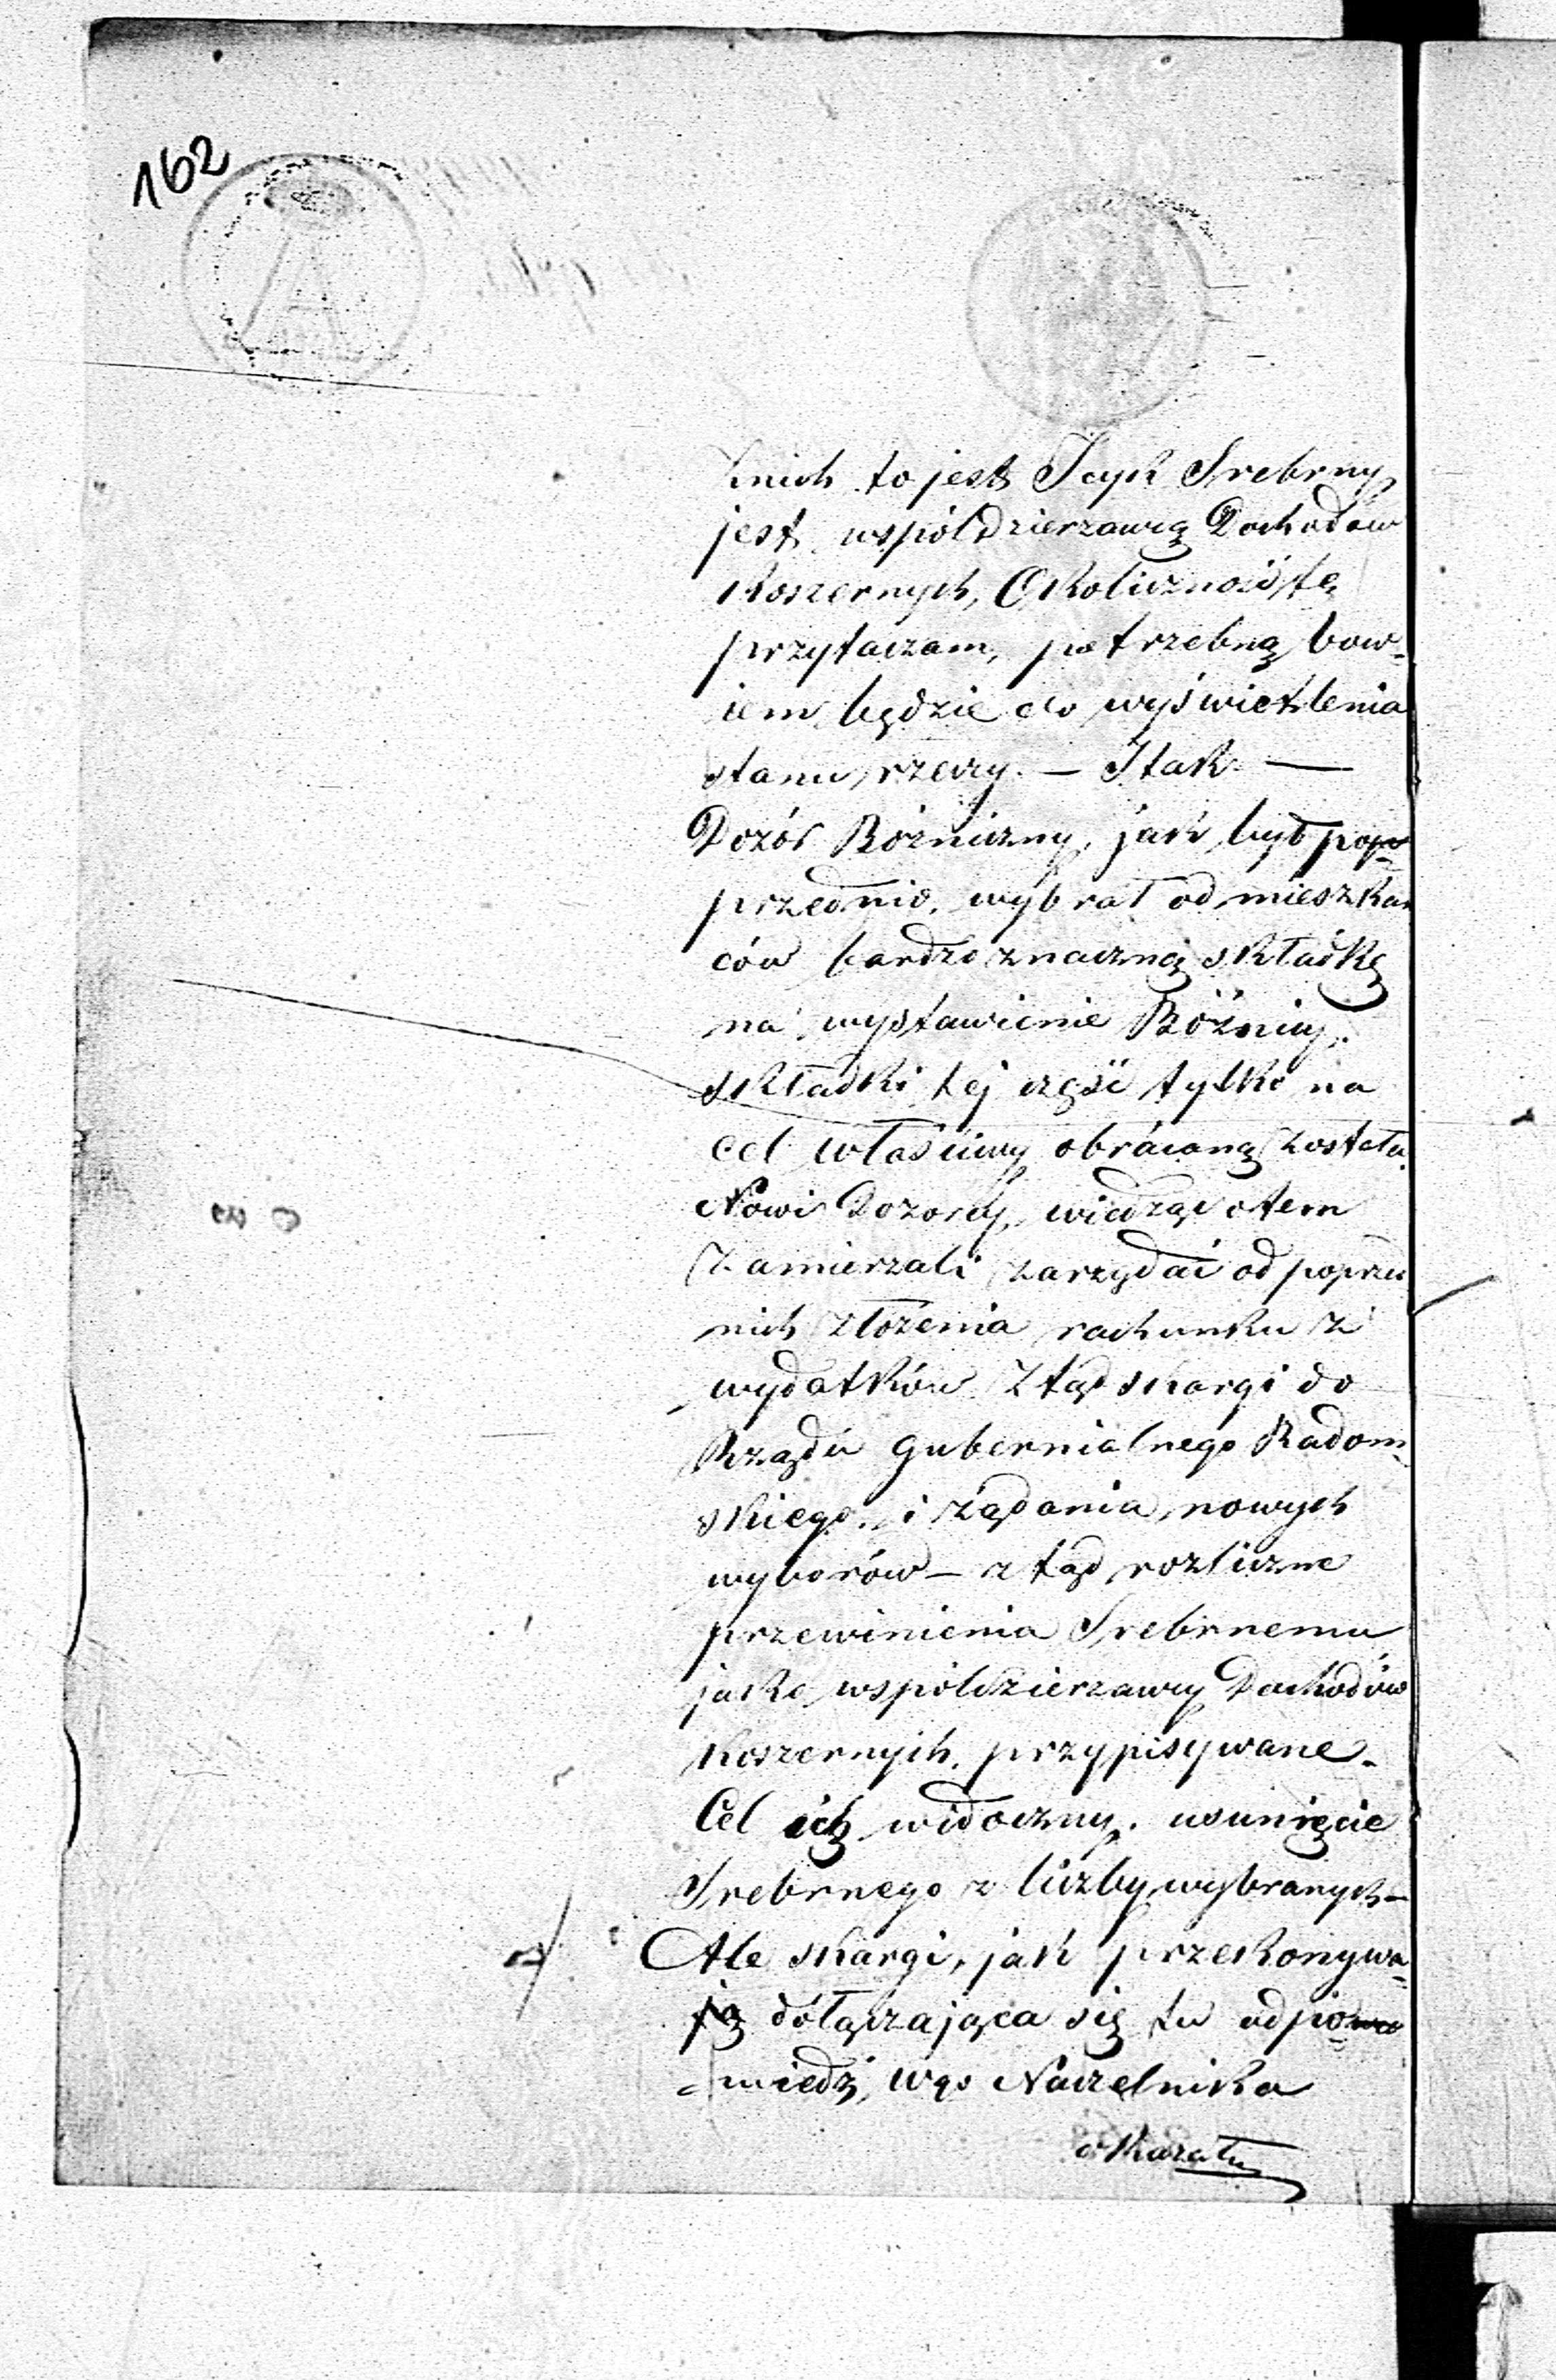 162
z nich to jest Icyk Srebrny
jest współdzierzawcą Dochodów
Koszernych, Okoliczność tę
przytaczam, potrzebną bow-
iem będzie do wyświetlenia
stanu rzeczy. — I tak —
Dozór Bóżniczny, jaki był po
przednio, wybrał od mieszkań
ców bardzo znaczną składkę
na wystawienie Bóżnicy,
składki tej część tylko na
cel właściwy obróconą została.
Nowi Dozorcy, wiedząc o tem
zamierzali zarządać od poprzed
nich złożenia rachunku z
wydatków ztąd skargi do
Rządu Gubernialnego Radom-
skiego, i żądania nowych
wyborów — ztąd rozliczne
przewinienia Srebrnemu
jako współdzierzawcy Dochodów
Koszernych, przypisywane.
Cel ich widoczny, usunięcie
Srebrnego z liczby wybranych —
Ale skargi, jak przekonywa-
ją dołączająca się tu odpo
wiedź, Wgo Naczelnika
okazała